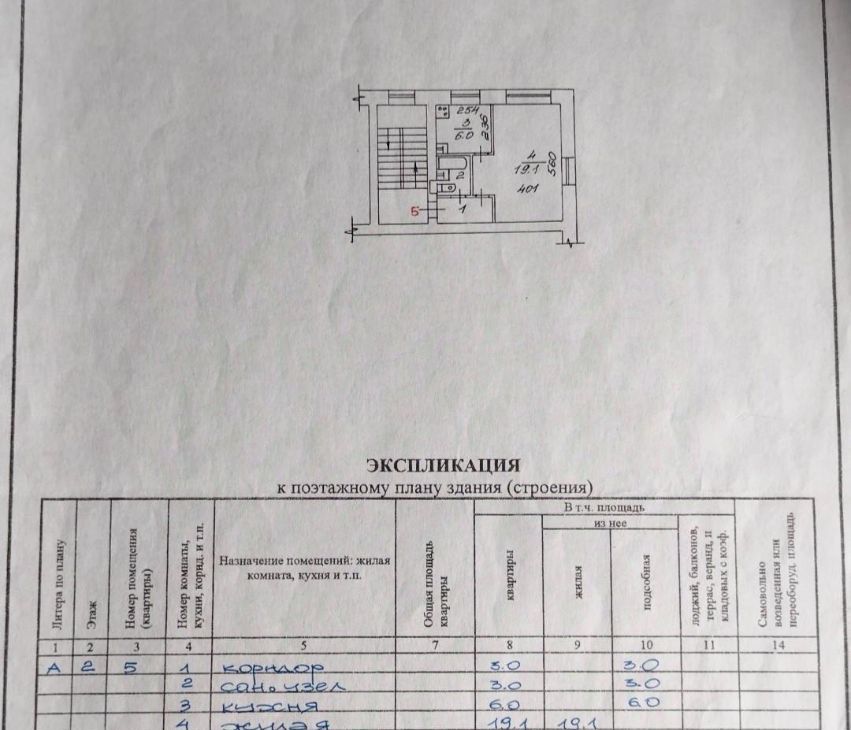 254
3
6.0
236
4
19.1
560
401
2
5
1
ЭКСПЛИКАЦИЯ
к поэтажному плану здания (строения)
Литера по плану
Этаж
Номер помещения (квартиры)
Номер комнаты, кухни, корид. и т.п.
Назначение помещений: жилая
комната, кухня и т.п.
Общая площадь квартиры
В т.ч. площадь
из нее
квартиры
жилая
подсобная
лоджий, балконов, террас, веранд, и кладовых с коэф.
Самовольно возведенная или переоборуд. площадь
1 2 3 4 5 7 8 9 10 11 14
А 2 5 1 коридор 3.0 3.0
2 сан.узел 3.0 3.0
3 кухня 6.0 6.0
4 жилая 19.1 19.1